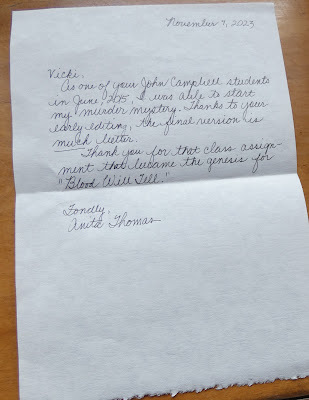 November 7, 2023
Vicki,
As one of your John Campbell students
in June, 2015, I was able to start
my murder mystery. Thanks to your
early editing, the final version is
much better.
Thank you for that class assign-
ment that became the genesis for
"Blood Will Tell."
Fondly,
Anita Thomas